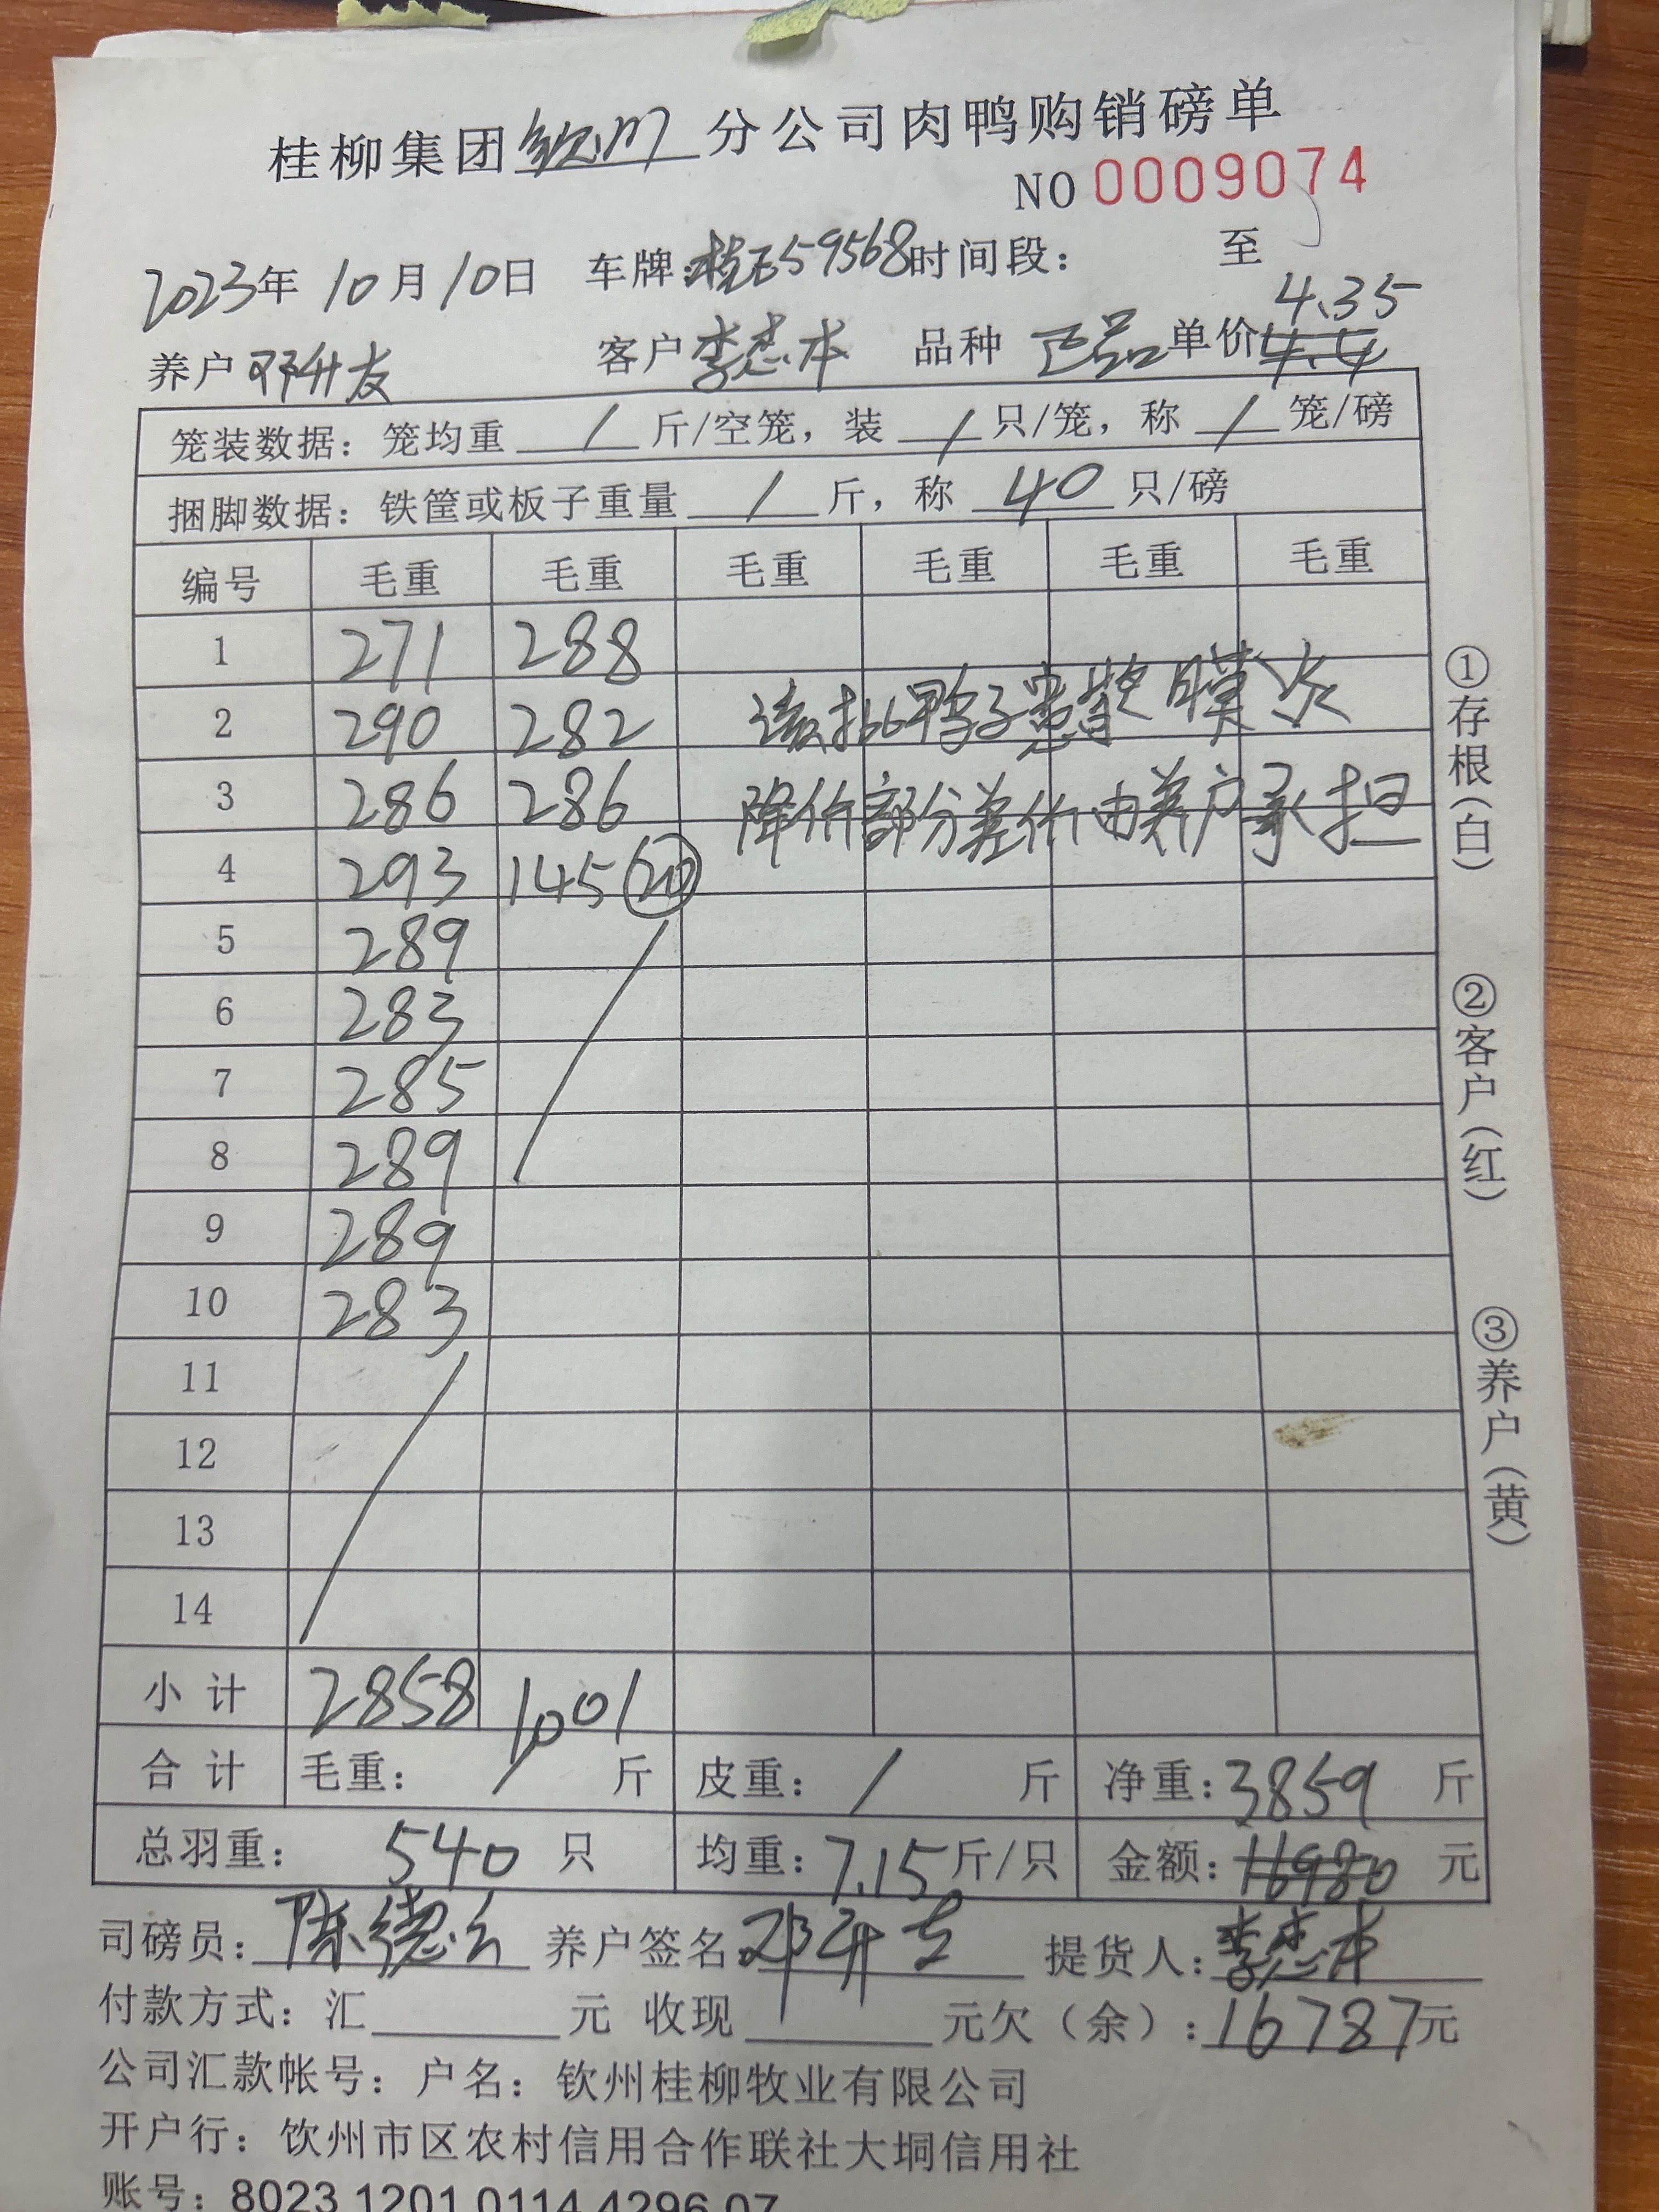 桂柳集团钦州分公司肉鸭购销磅单
NO 0009074
2023年 10月10日 车牌:桂E59568时间段: 至
4.35
养户 邓升友 客户 李忠本 品种 正品 单价 4.4
笼装数据: 笼均重 / 斤/空笼, 装 / 只/笼, 称 / 笼/磅
捆脚数据: 铁筐或板子重量 / 斤, 称 40 只/磅
编号 毛重 毛重 毛重 毛重 毛重 毛重
1 271 288
2 290 282 该批鸭子 膜炎
3 286 286 降价部分差价由养户承担
4 293 145 20
5 289
6 283
7 285
8 289
9 289
10 283
11
12
13
14
小计 2858 1001
合计 毛重: / 斤 皮重: / 斤 净重:3859 斤
总羽重: 540 只 均重:7.15斤/只 金额:16980 元
司磅员: 陈德云 养户签名:邓升友 提货人:李忠本
付款方式: 汇 元 收现 元欠(余):16787元
公司汇款帐号: 户名: 钦州桂柳牧业有限公司
开户行: 饮州市区农村信用合作联社大垌信用社
账号: 8023 1201 0114 4296 07
①存根(白)
②客户(红)
③养户(黄)